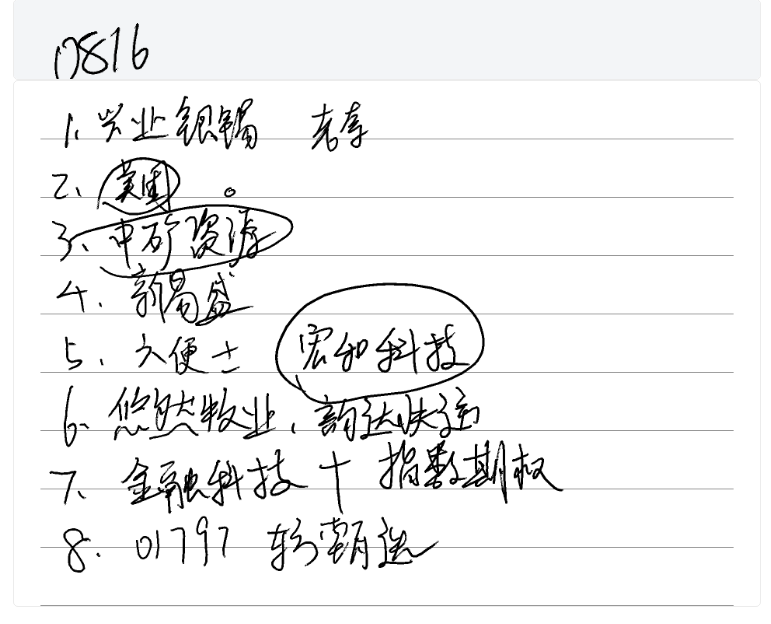 0816
1、兴业银锡 老李
2、美团。
3、中矿资源
4、新易盛
5、六便士 宏和科技
6、悠然牧业、韵达快运
7、金融科技+指数期权
8、01797 东方甄选